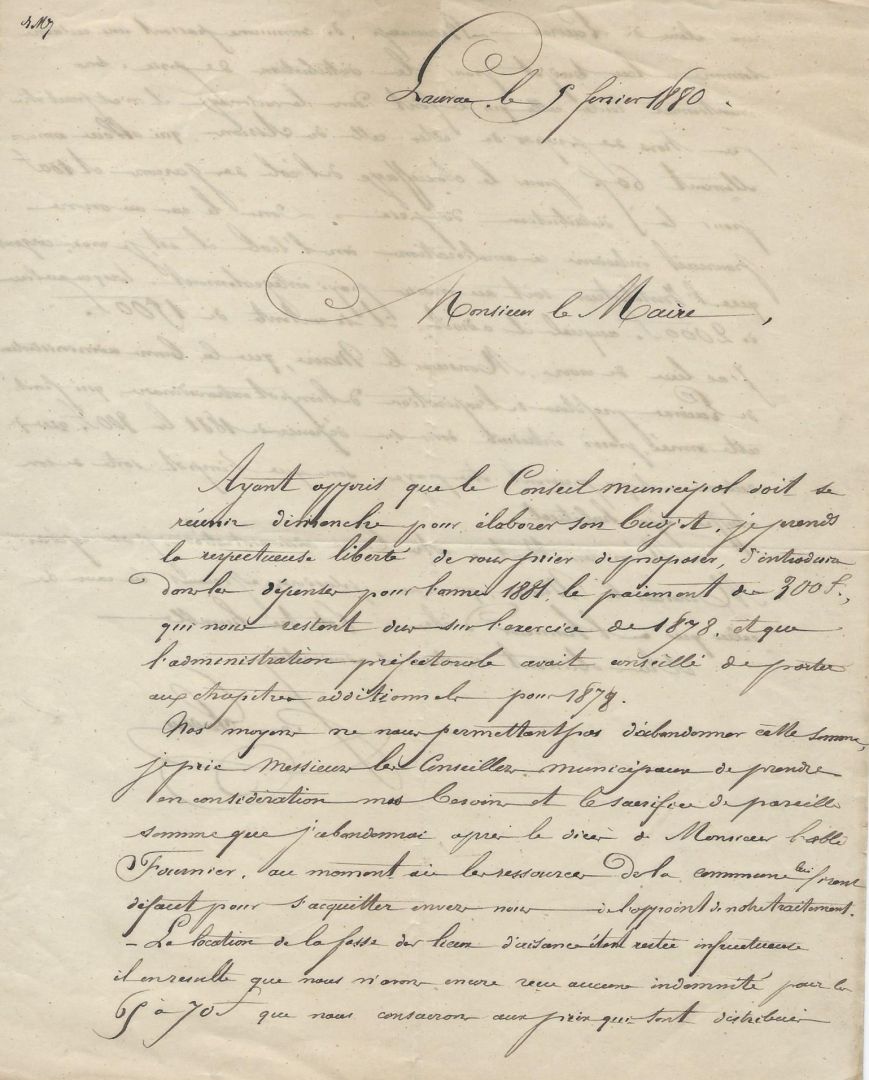 Laurac le 5 février 1880.
Monsieur le Maire,
Ayant appris que le Conseil municipal doit se
réunir dimanche pour élaborer son budjet, je prends
la respectueuse liberté de vous prier de proposer, d'introduire
dans les dépenses pour l'année 1881, le paiement de 300 f.,
qui nous restent dus sur l'exercice de 1878, et que
l'administration préfectorale avait conseillé de porter
aux chapitres additionnels pour 1879.
Nos moyens ne nous permettant pas d'abandonner cette somme,
je prie Messieurs les Conseillers municipaux de prendre
en considération nos besoins et le sacrifice de pareille
somme que j'abandonnai après le décès de Monsieur l'abbé
Fournier, au moment où les ressources de la commune lui firent
défaut pour s'acquitter envers nous de l'appoint de notre traitement.
- La location de la fosse des lieux d'aisance étant restée infructueuse
il en resulte que nous n'avons encore reçu aucune indemnité pour les
65 à 70 f que nous consacrons aux prix qui sont distribués